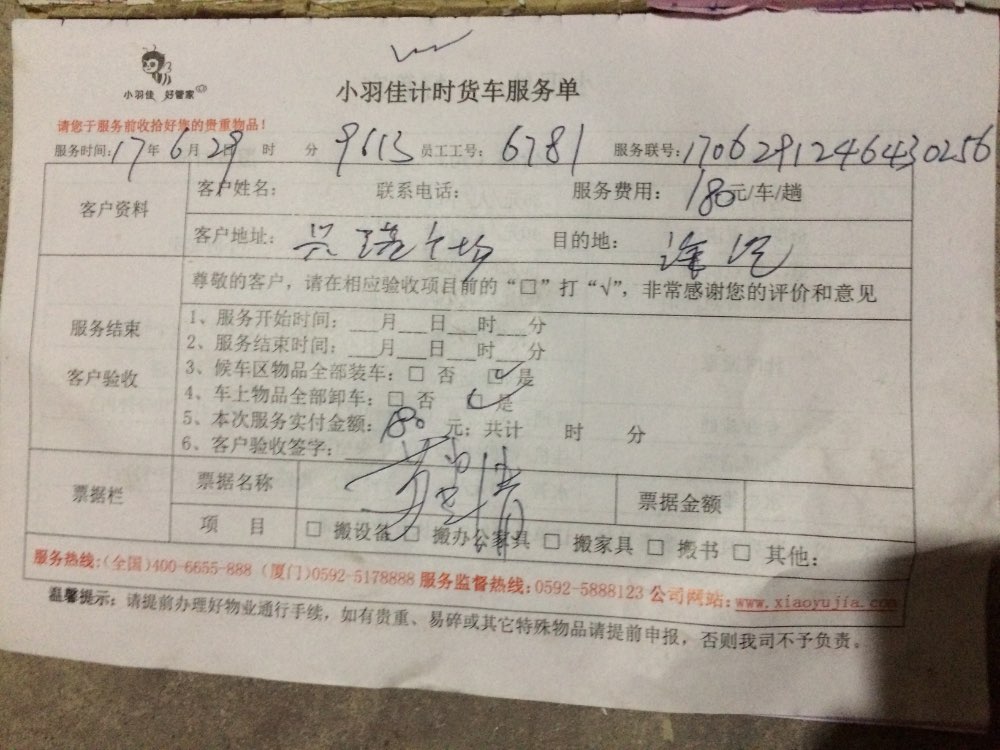 小羽佳 好管家
小羽佳计时货车服务单
请您于服务前收拾好您的贵重物品！
服务时间：17年6月29日 时 分 9613 员工工号：6781 服务联号：170629124646430256
客户资料
客户姓名： 联系电话： 服务费用：180元/车/趟
客户地址： 目的地：
尊敬的客户，请在相应验收项目前的“□”打“√”，非常感谢您的评价和意见
服务结束
客户验收
1、服务开始时间：___月___日___时___分
2、服务结束时间：___月___日___时___分
3、候车区物品全部装车：□ 否 □√ 是
4、车上物品全部卸车：□ 否 □√ 是
5、本次服务实付金额：180元；共计 时 分
6、客户验收签字：
票据栏
票据名称 票据金额
项 目 □ 搬设备 □ 搬办公家具 □ 搬家具 □ 搬书 □ 其他：
服务热线：(全国)400-6655-888 (厦门)0592-5178888 服务监督热线：0592-5888123 公司网站：www.xiaoyujia.com
温馨提示：请提前办理好物业通行手续，如有贵重、易碎或其它特殊物品请提前申报，否则我司不予负责。